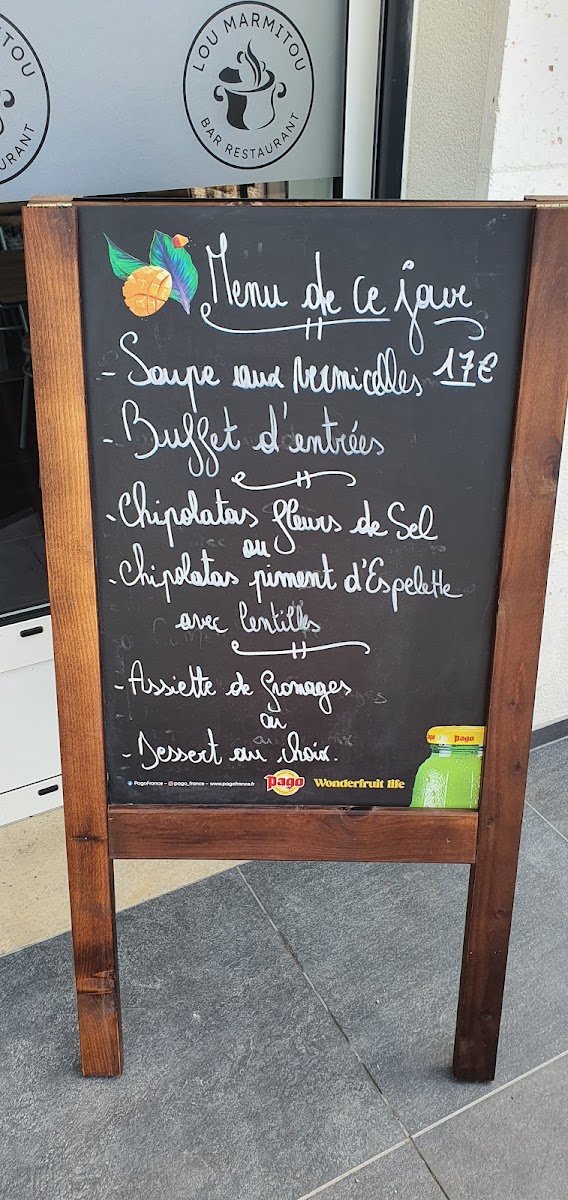 LOU MARMITOU
BAR RESTAURANT
URANT
Menu de ce jour
- Soupe aux vermicelles 17€
- Buffet d'entrées
- Chipolatas fleurs de Sel
ou
- Chipolatas piment d'Espelette
avec lentilles
- Assiette de fromages
ou
- Dessert au choix.
PagoFrance - pago_france - www.pagofrance.fr
Pago
Wonderfruit life
Pago